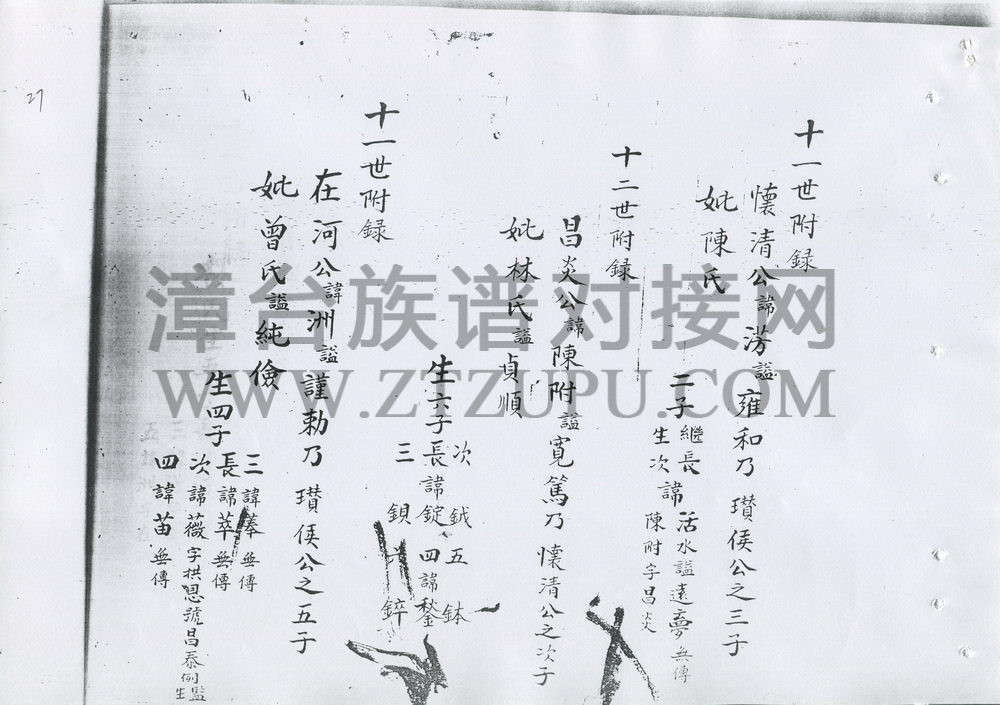 十一世附録
懷清公諱淓謚雍和乃瓚侯公之三子
妣陳氏
二子
繼長諱活水謚遠夢無傳
生次諱陳附字昌炎
十二世附録
昌炎公諱陳附謚寬篤乃懷清公之次子
妣林氏謚貞順
生六子長諱錠
次鉞五鉢
四諱鍫
三鋇
鋅
十一世附録
在河公諱洲謚謹勅乃瓚侯公之五子
妣曾氏謚純儉
生四子
三諱菶無傳
長諱萃無傳
次諱薇字拱恩號昌泰例監生
四諱苗無傳
27
漳台族谱对接网
WWW.ZTZUPU.COM